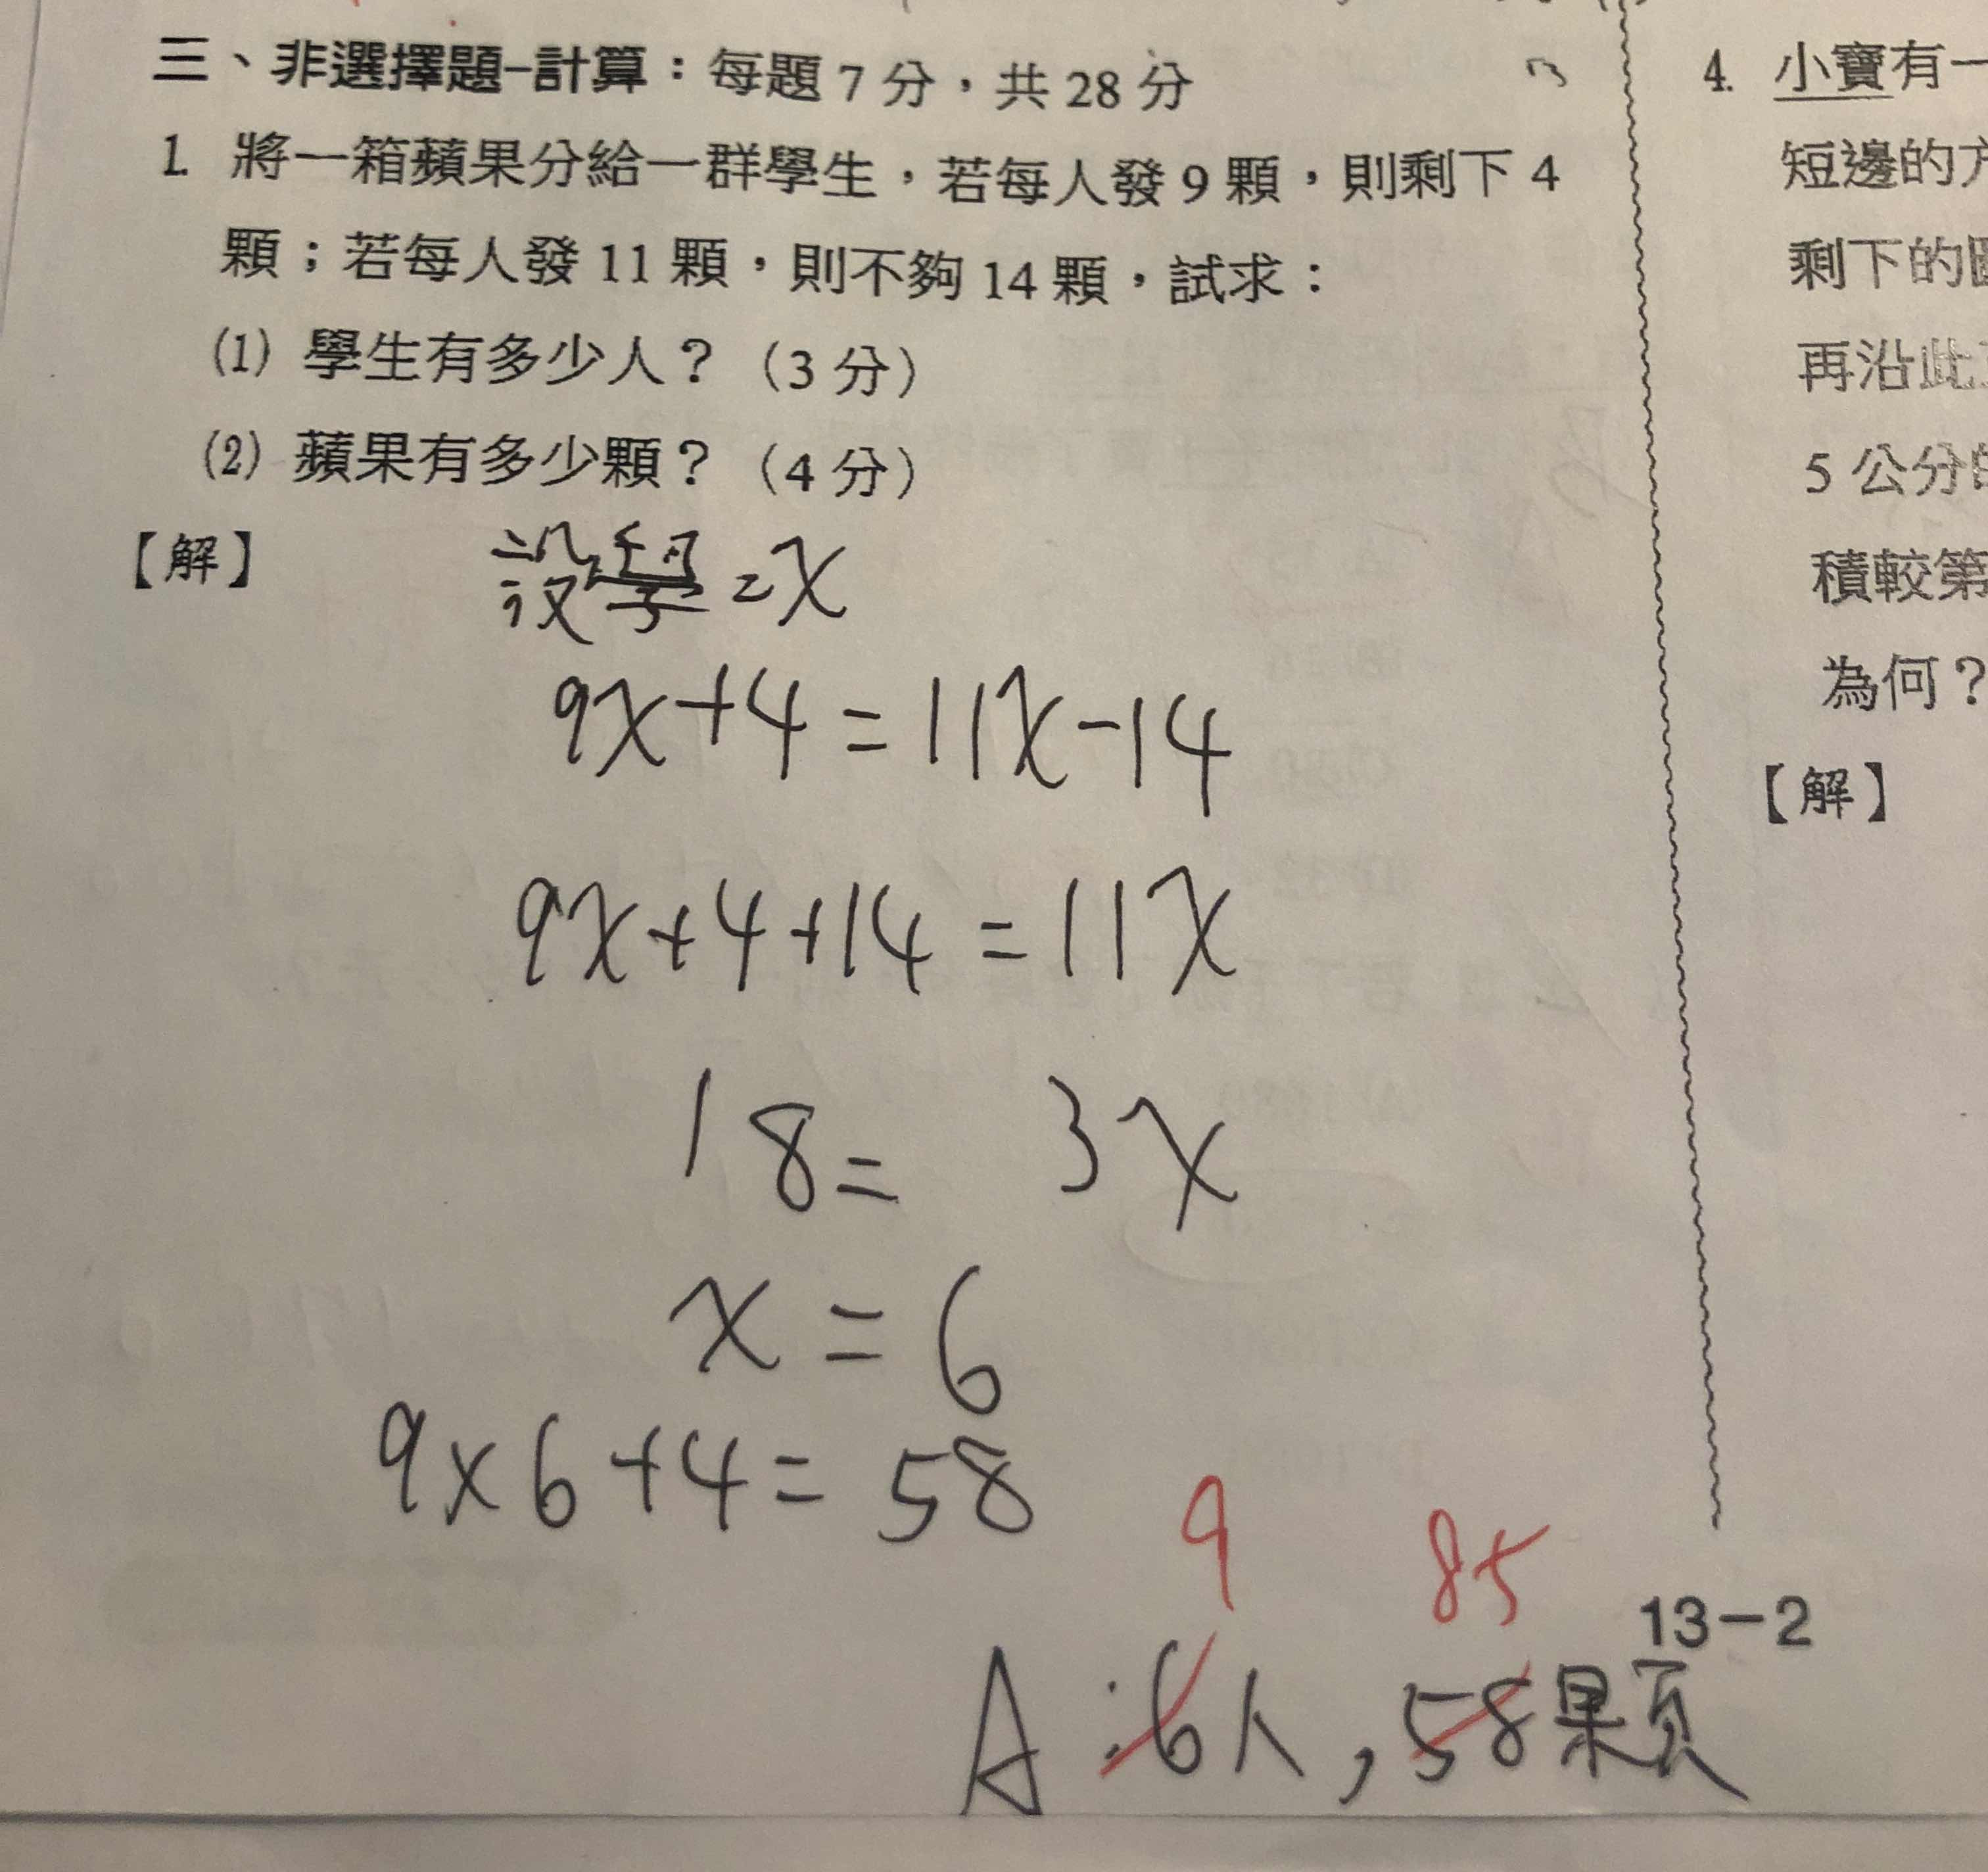 三、非選擇題-計算：每題 7 分，共 28 分
1. 將一箱蘋果分給一群學生，若每人發 9 顆，則剩下 4
顆；若每人發 11 顆，則不夠 14 顆，試求：
(1) 學生有多少人？（3 分）
(2) 蘋果有多少顆？（4 分）
【解】
設學=x
9x+4=11x-14
9x+4+14=11x
18= 3x
x=6
9×6+4=58
9 85
A:6人,58顆
13-2
4. 小寶有一
短邊的方
剩下的
再沿此
5 公分的
積較第
為何？
【解】